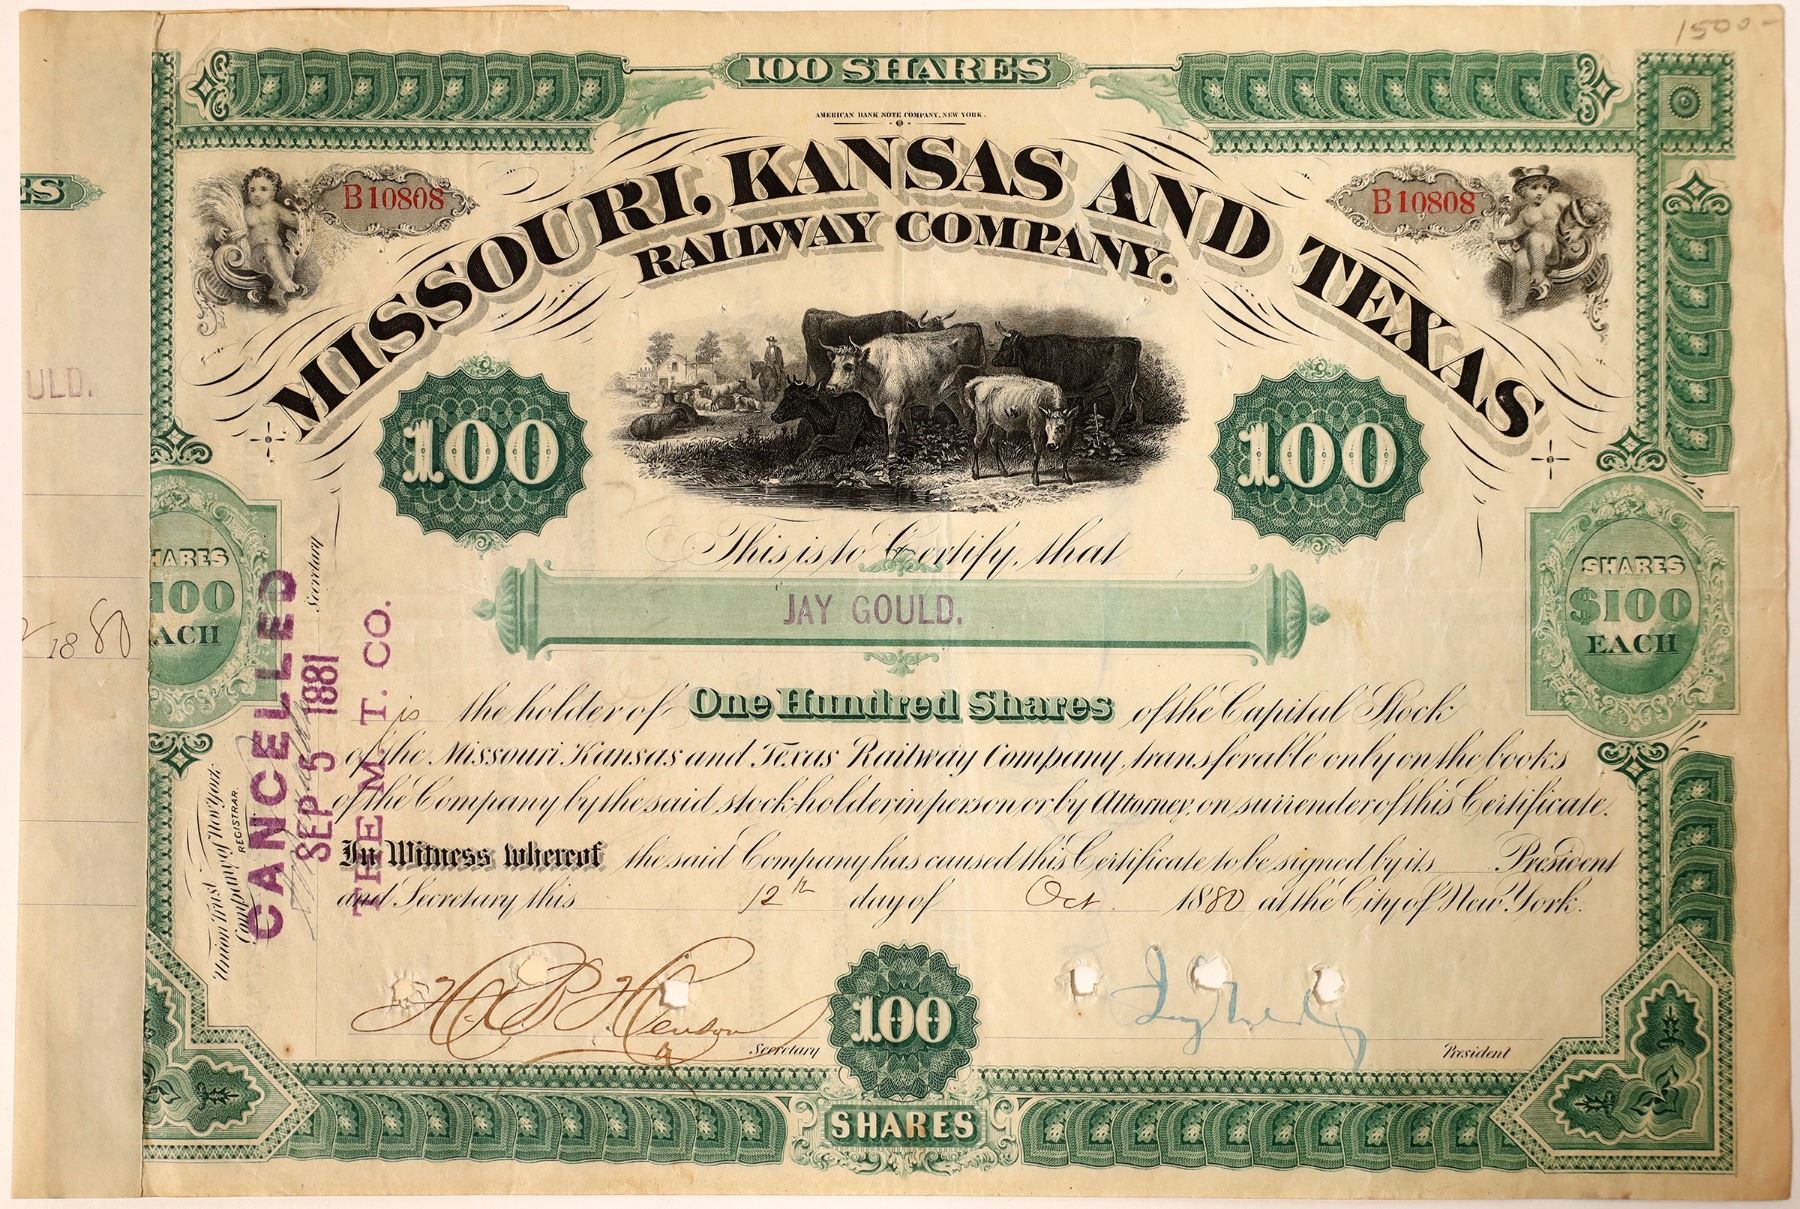 1500-
100 SHARES
AMERICAN BANK NOTE COMPANY, NEW YORK.
MISSOURI, KANSAS AND TEXAS
RAILWAY COMPANY.
B10808
B10808
ES
ULD.
100
100
This is to Certify, that
JAY GOULD.
HARES
100
ACH
SHARES
$100
EACH
1880
is the holder of One Hundred Shares of the Capital Stock
of the Missouri Kansas and Texas Railway Company, transferable only on the books
of the Company by the said stockholder in person or by Attorney, on surrender of this Certificate.
In Witness whereof the said Company has caused this Certificate to be signed by its President
and Secretary this 12th day of Oct. 1880 at the City of New York.
Union Trust Company of New York
REGISTRAR.
Secretary
CANCELLED
SEP 5 1881
THE M. T. CO.
H. B. Henson
Secretary
Jay Gould
President
100
SHARES